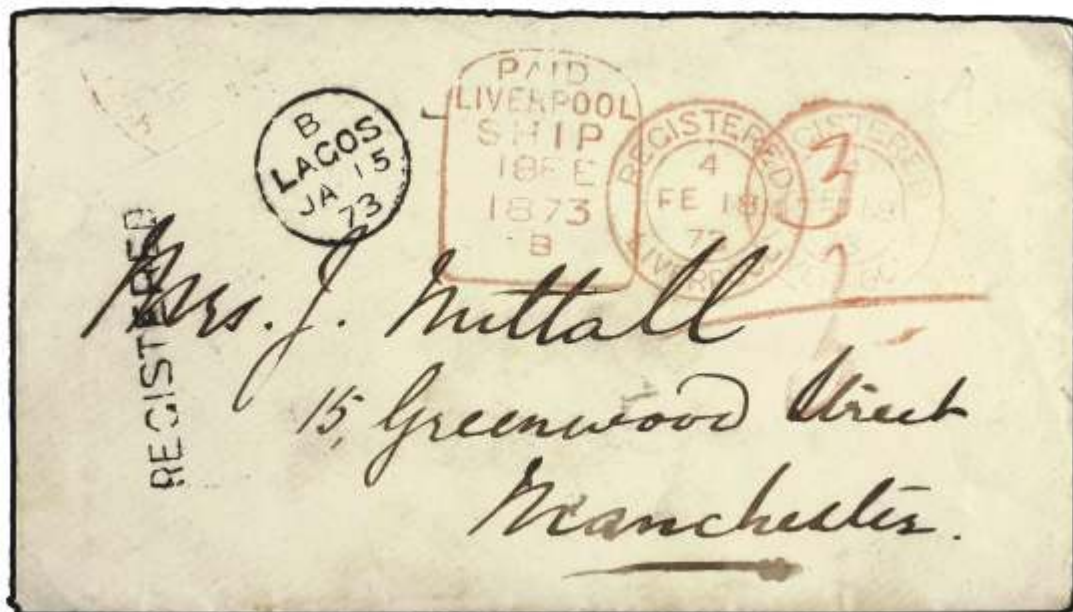 B
LAGOS
JA 15
73
PAID
LIVERPOOL
SHIP
18FE
1873
B
REGISTERED
4
FE 18
73
LIVERPOOL
REGISTERED
3
REGISTERED
Mrs. J. Nuttall
15, Greenwood Street
Manchester.